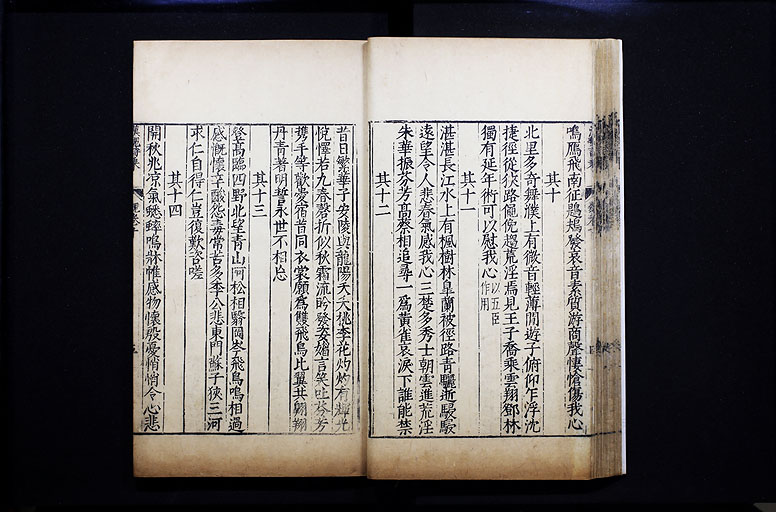 鳴鴈飛南征鶗鴂發哀音素質游商聲悽愴傷我心
其十
北里多奇舞濮上有微音輕薄閒遊子俯仰乍浮沈
捷徑從狹路僶俛趨荒淫焉見王子喬乘雲翔鄧林
獨有延年術可以慰我心以五臣作用
其十一
湛湛長江水上有楓樹林皐蘭被徑路青驪逝駸駸
遠望令人悲春氣感我心三楚多秀士朝雲進荒淫
朱華振芬芳高蔡相追尋一爲黃雀哀淚下誰能禁
其十二
昔日繁華子安陵與龍陽夭夭桃李花灼灼有輝光
悅懌若九春磬折似秋霜流盻發姿媚言笑吐芬芳
攜手等歡愛宿昔同衣裳願爲雙飛鳥比翼共翺翔
丹青著明誓永世不相忘
其十三
登高臨四野北望青山阿松柏翳岡岑飛鳥鳴相過
感慨懷辛酸怨毒常苦多李公悲東門蘇子狹三河
求仁自得仁豈復歎咨嗟
其十四
開秋兆涼氣蟋蟀鳴牀帷感物懷殷憂悄悄令心悲